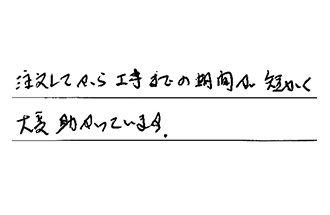 注文してから工事までの期間が短かく
大変助かっています.